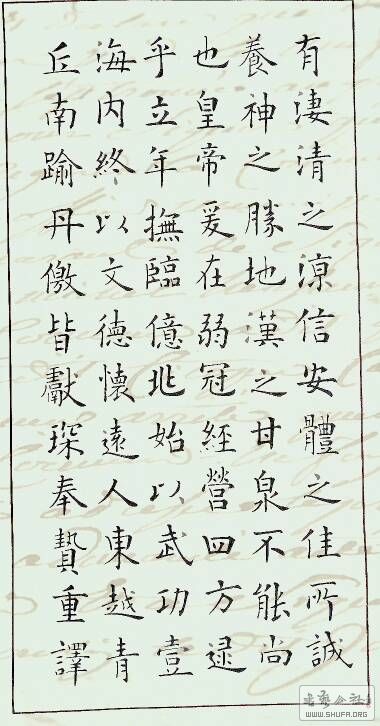 有淒清之涼信安體之佳所誠
養神之勝地漢之甘泉不能尚
也皇帝爰在弱冠經營四方逮
乎立年撫臨億兆始以武功壹
海内終以文德懷遠人東越青
丘南踰丹儌皆獻琛奉贄重譯
WWW.SHUFA.ORG